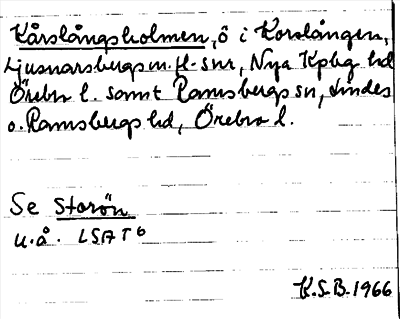 Kårslångsholmen, ö i Korslången,
Ljusnarsbergs m.fl. snr, Nya Kpbg hd
Örebro l. samt Ramsbergs sn, Lindes
o. Ramsbergs hd, Örebro l.
Se Storön
u.å. LSA T 6
K.S.B. 1966